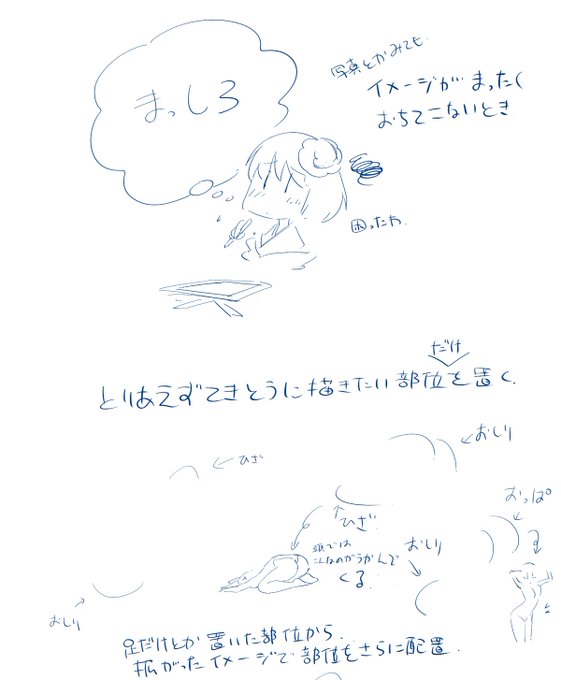 まっしろ
写真とかみても
イメージがまったく
おちてこないとき
困ったわ
だけ
とりあえずてきとうに描きたい部位を置く。
ひざ
おしり
おっぱ
ひざ
頭では
こんなのがうかんで
くる
おしり
おしり
足だけとか置いた部位から
拡がったイメージで部位をさらに配置